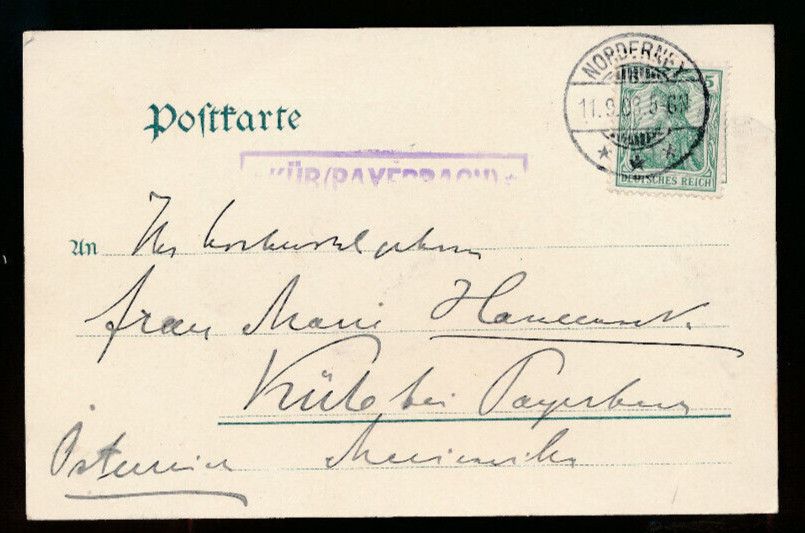 NORDERNEY
11.9.03.5-6N
5
DEUTSCHES REICH
Postkarte
KÜB(PAYERBACH)
An Ihr Hochwohlgeboren
Frau Marie
Küb bei Payerbach
Österreich